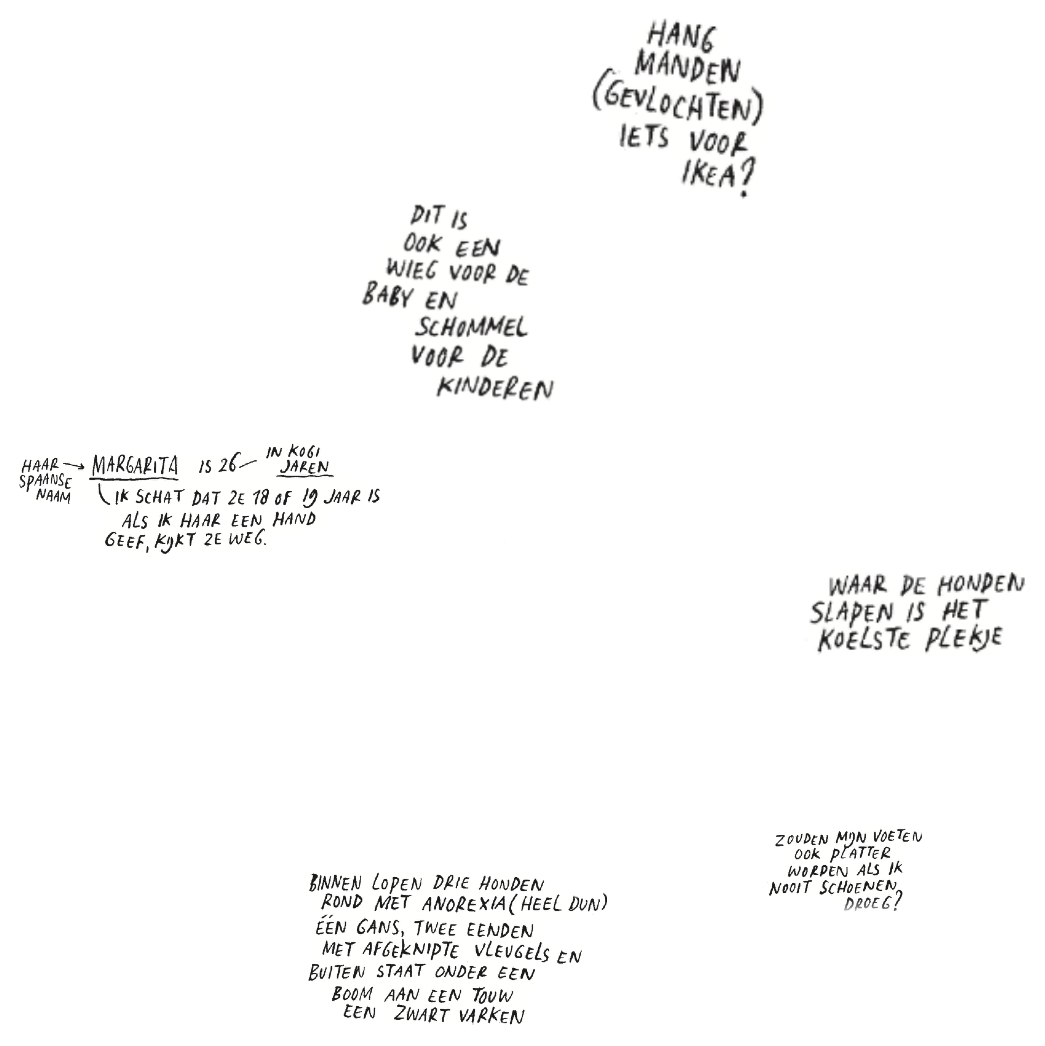 HANG
MANDEN
(GEVLOCHTEN)
IETS VOOR
IKEA?
DIT IS
OOK EEN
WIEG VOOR DE
BABY EN
SCHOMMEL
VOOR DE
KINDEREN
HAAR → MARGARITA IS 26 — IN KOGI
SPAANSE JAREN
NAAM
IK SCHAT DAT ZE 18 OF 19 JAAR IS
ALS IK HAAR EEN HAND
GEEF, KIJKT ZE WEG.
WAAR DE HONDEN
SLAPEN IS HET
KOELSTE PLEKJE
ZOUDEN MIJN VOETEN
OOK PLATTER
WORDEN ALS IK
NOOIT SCHOENEN
DROEG?
BINNEN LOPEN DRIE HONDEN
ROND MET ANOREXIA (HEEL DUN)
ÉÉN GANS, TWEE EENDEN
MET AFGEKNIPTE VLEUGELS EN
BUITEN STAAT ONDER EEN
BOOM AAN EEN TOUW
EEN ZWART VARKEN